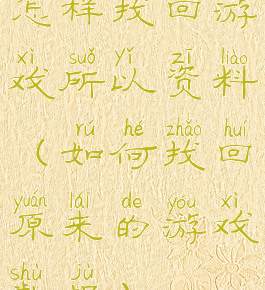 怎样找回游
xì suǒ yǐ zī liào
戏所以资料
rú hé zhǎo huí
（如何找回
yuán lái de yóu xì
原来的游戏
shù jù